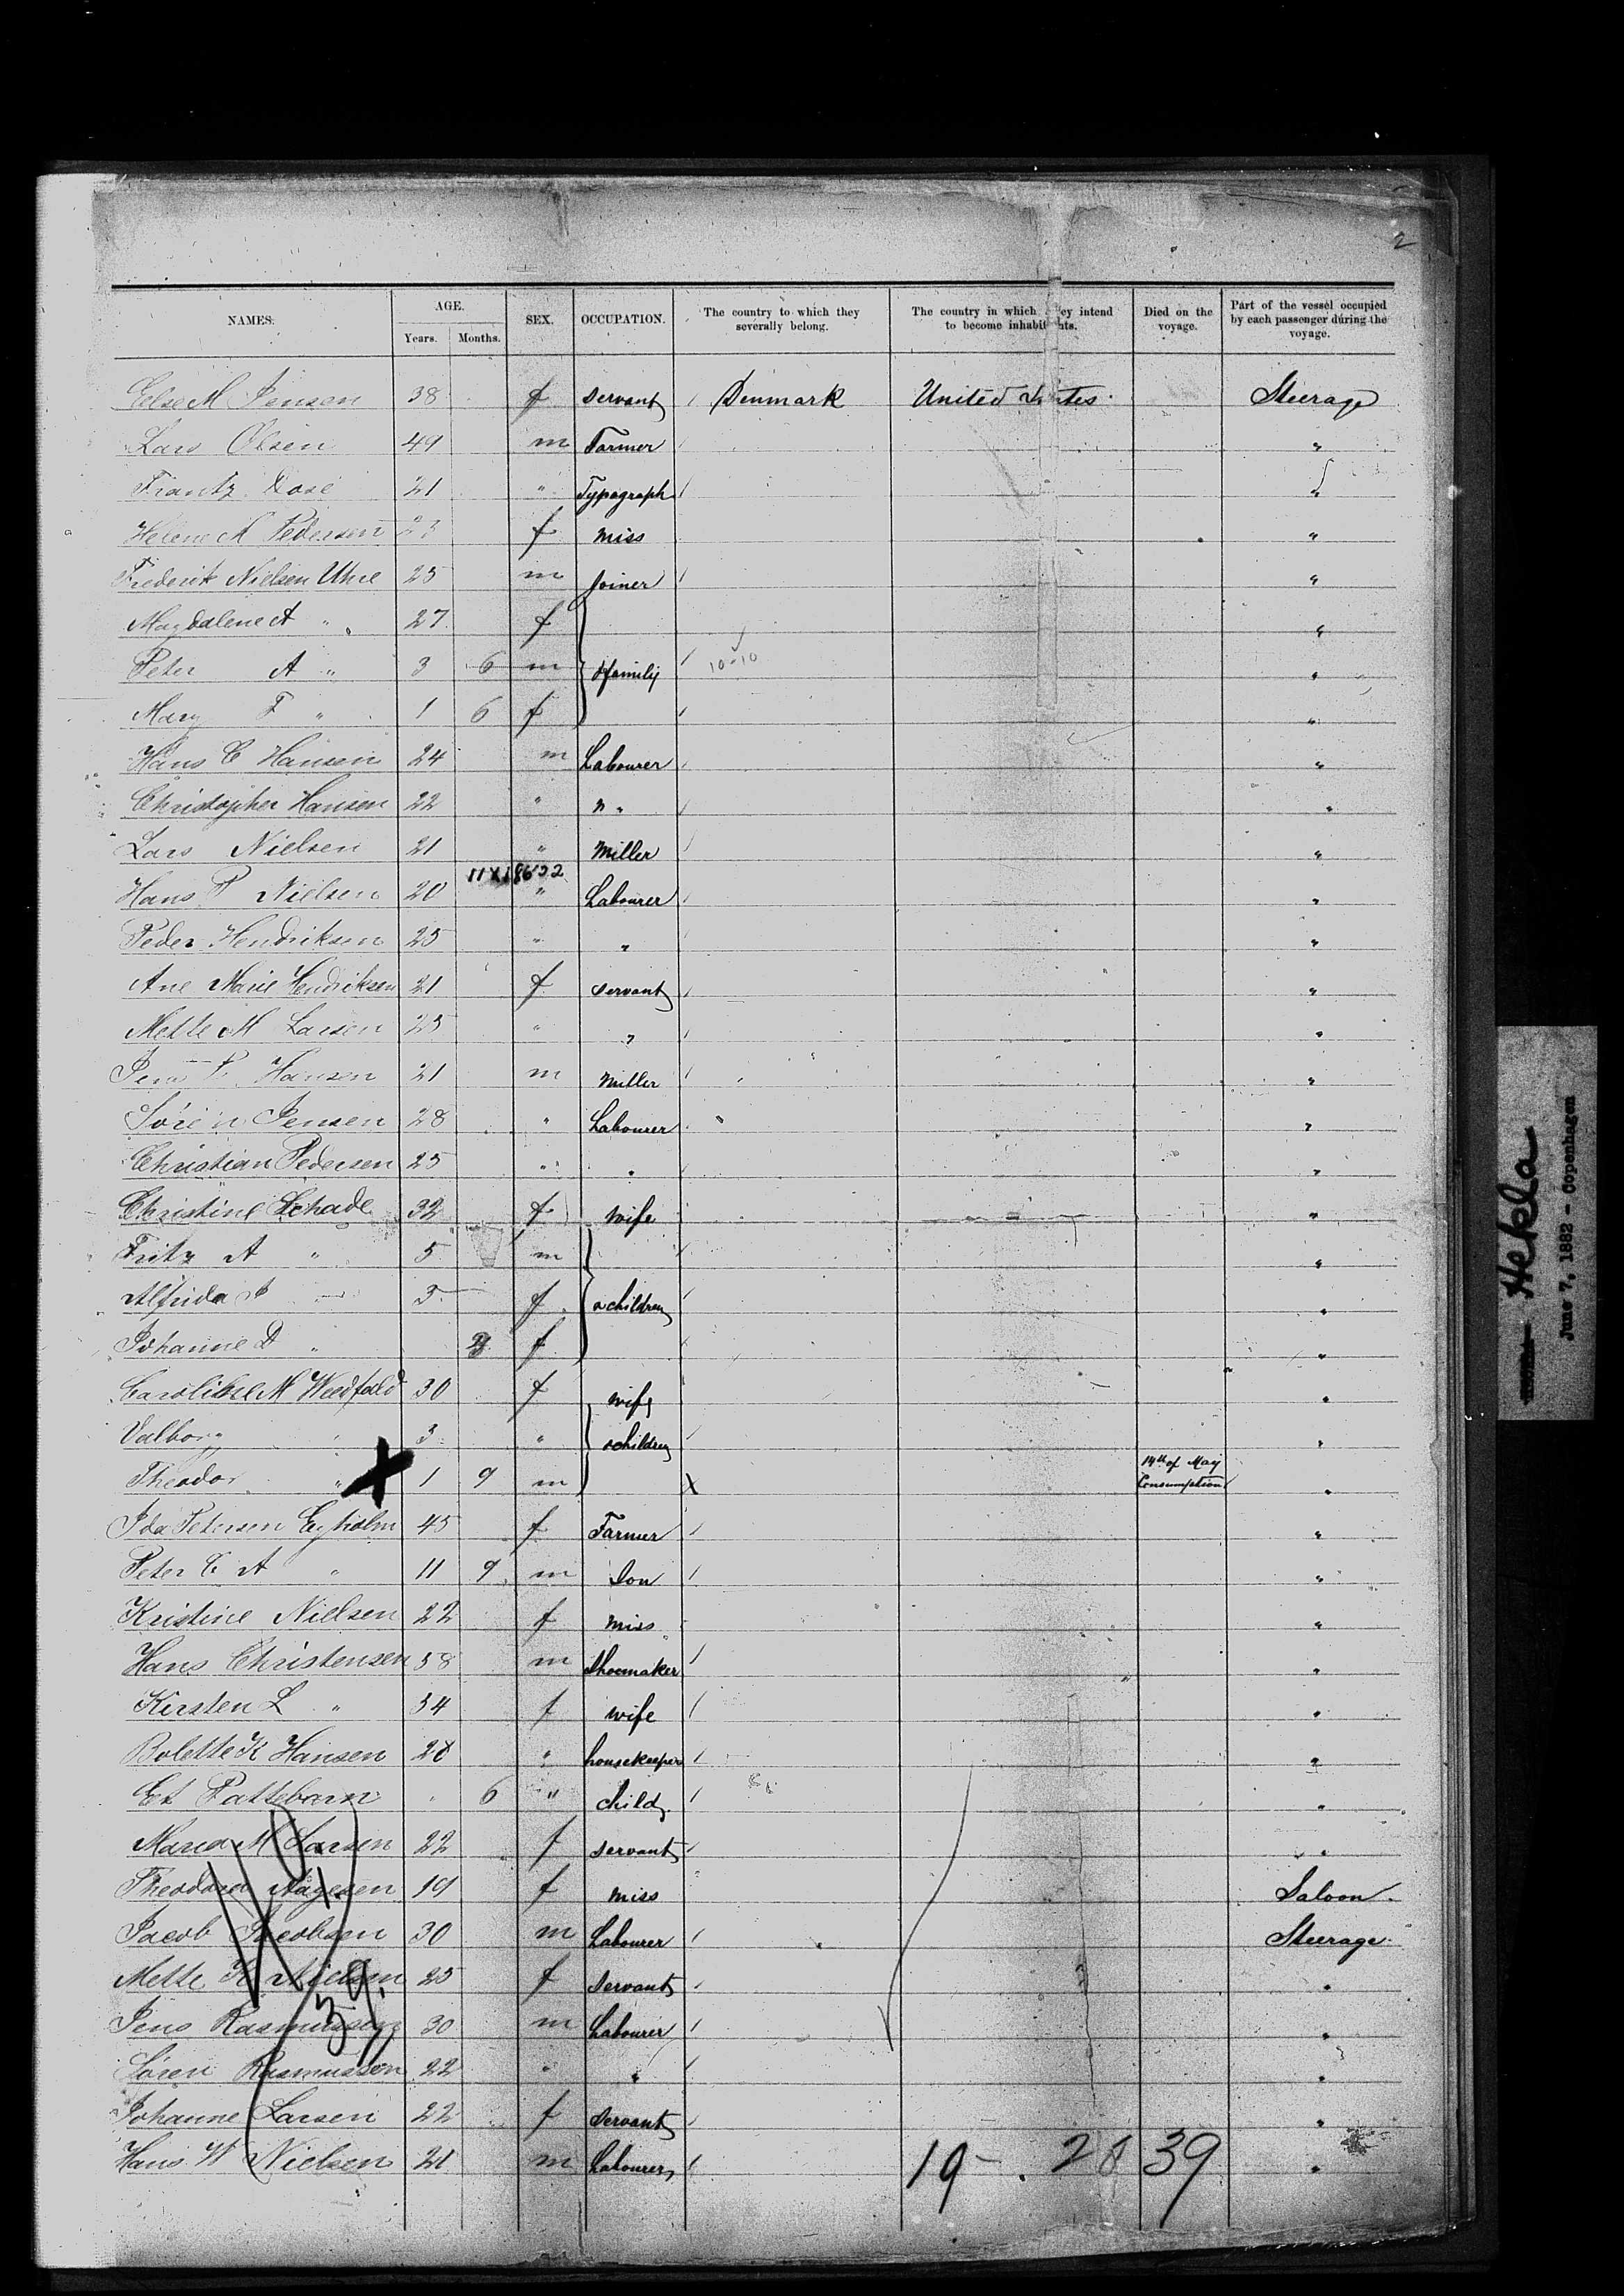 2
NAMES. AGE. Years. Months. SEX. OCCUPATION. The country to which they severally belong. The country in which ey intend to become inhabit nts. Died on the voyage. Part of the vessel occupied by each passenger during the voyage.
Else M Jensen 38 f servant Denmark United States Steerage
Lars Olsen 49 m Farmer "
Frantz 21 " Typograph "
Helene M Pedersen 23 f miss "
Frederik Nielsen Uhre 25 m Joiner "
Magdalene A " 27 f "
Peter A " 3 6 m family 10-10 "
Mary F " 1 6 f "
Hans C Hansen 24 m Labourer "
Christopher Hansen 22 " " "
Lars Nielsen 21 " Miller "
Hans P Nielsen 20 " Labourer "
Peder Hendriksen 25 " " "
Ane Marie Hendriksen 21 f servant "
Mette M Larsen 25 " " "
Jens P Hansen 21 m Miller "
Sören Jensen 28 " Labourer "
Christian Pedersen 25 " " "
Christine Schade 32 f wife "
Fritz A " 5 m "
Alfrida J 3 f children "
Johanne D " f "
Caroline M Weedfald 30 f wife "
Valborg " 3 " children "
Theodor " X 1 9 m X 14th of May Consumption "
Ida Petersen Eyholm 45 f Farmer "
Peter C A " 11 9 m Son "
Kristine Nielsen 22 f miss "
Hans Christensen 58 m Shoemaker "
Kirsten L " 34 f wife "
Bolette K Hansen 28 " housekeeper "
Et Pattebarn 6 " child "
Maren M Larsen 22 f servant "
Theodora Aagesen 19 f miss Saloon
Jacob Jacobsen 30 m Labourer Steerage
Mette K Nielsen 25 f Servant "
Jens Rasmussen 30 m Labourer "
Sören Rasmussen 22 " " "
Johanne Larsen 22 f Servant "
Hans W Nielsen 21 m Labourer "
39.
19 - 20 39
Hekla
June 7, 1882 - Copenhagen